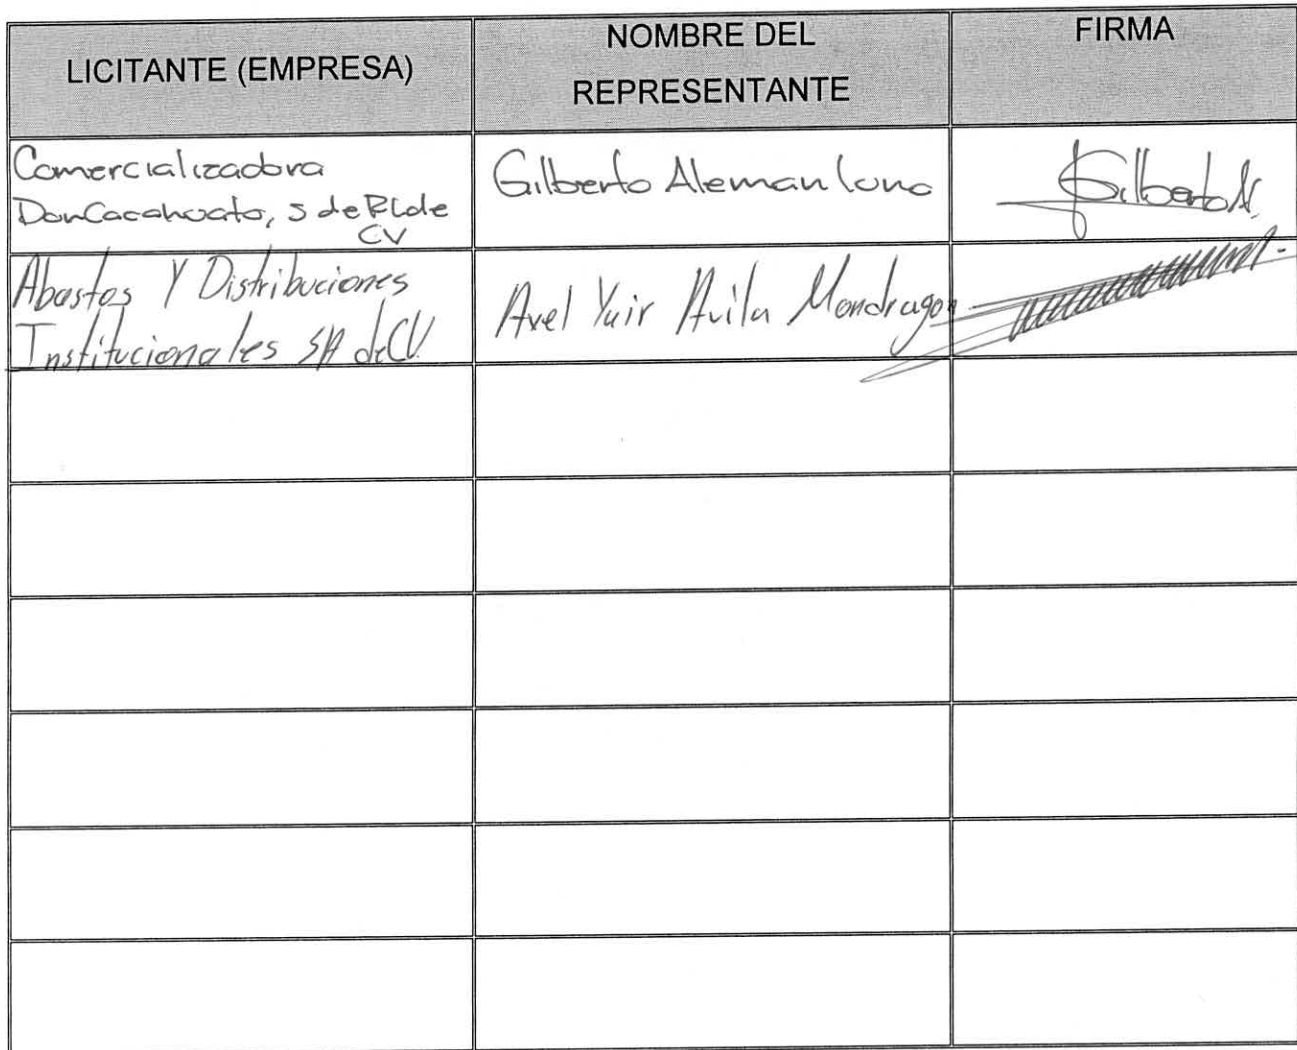 LICITANTE (EMPRESA)
NOMBRE DEL
REPRESENTANTE
FIRMA
Comercializadora
Don Cacahuato, S de RL de
CV
Gilberto Aleman Luna
Gilberto A.
Abastos Y Distribuciones
Institucionales SA de CV
Axel Yair Avila Mondragon